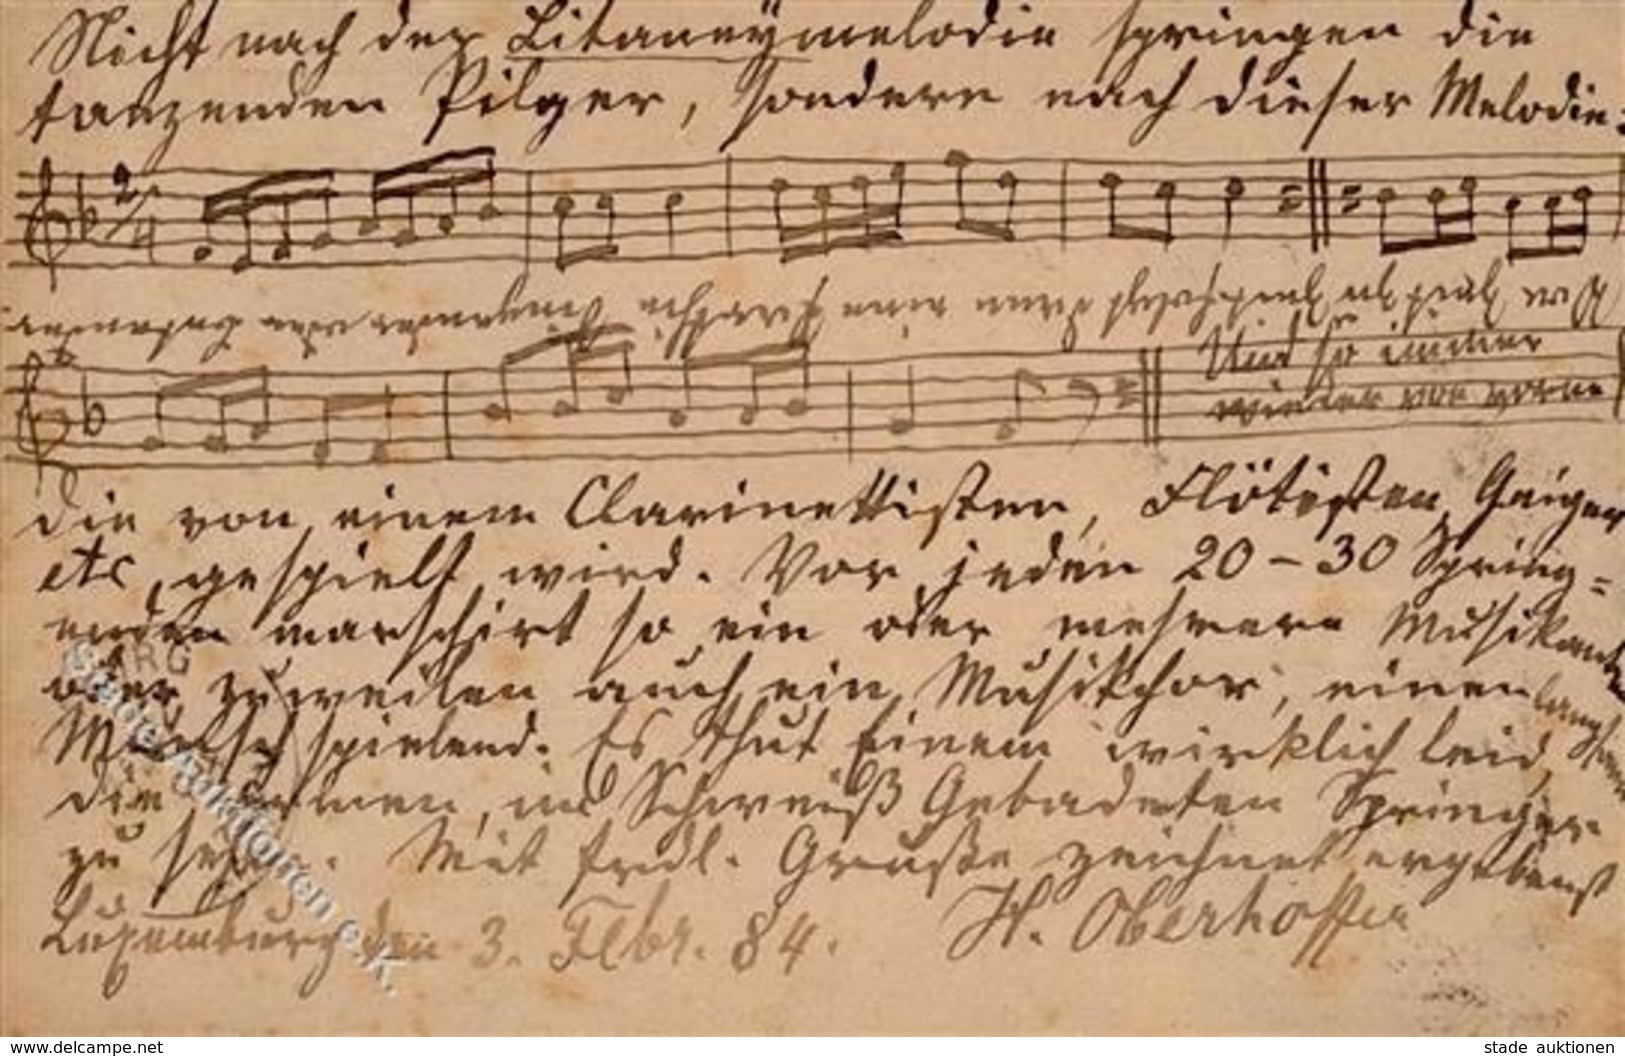 Nicht nach der Litaneymelodie springen die
tanzenden Pilger, sondern nach dieser Melodie:
2/4
Und so immer
wieder von vorne
die von einem Clarinettisten, Flötisten, Geiger
etc gespielt wird. Vor jeden 20-30 Spring=
enden marschirt so ein oder mehrere Musikanten
oder zuweilen auch ein Musikchor, einen langsamen
Marsch spielend. Es thut Einem wirklich leid,
die Armen, in Schweiß Gebadeten Springer
zu sehen. Mit frdl. Gruße zeichnet ergebenst
Luxemburg den 3. Febr. 84. H. Oberhoffer
Stade Auktionen e.K.
www.delcampe.net stade auktionen